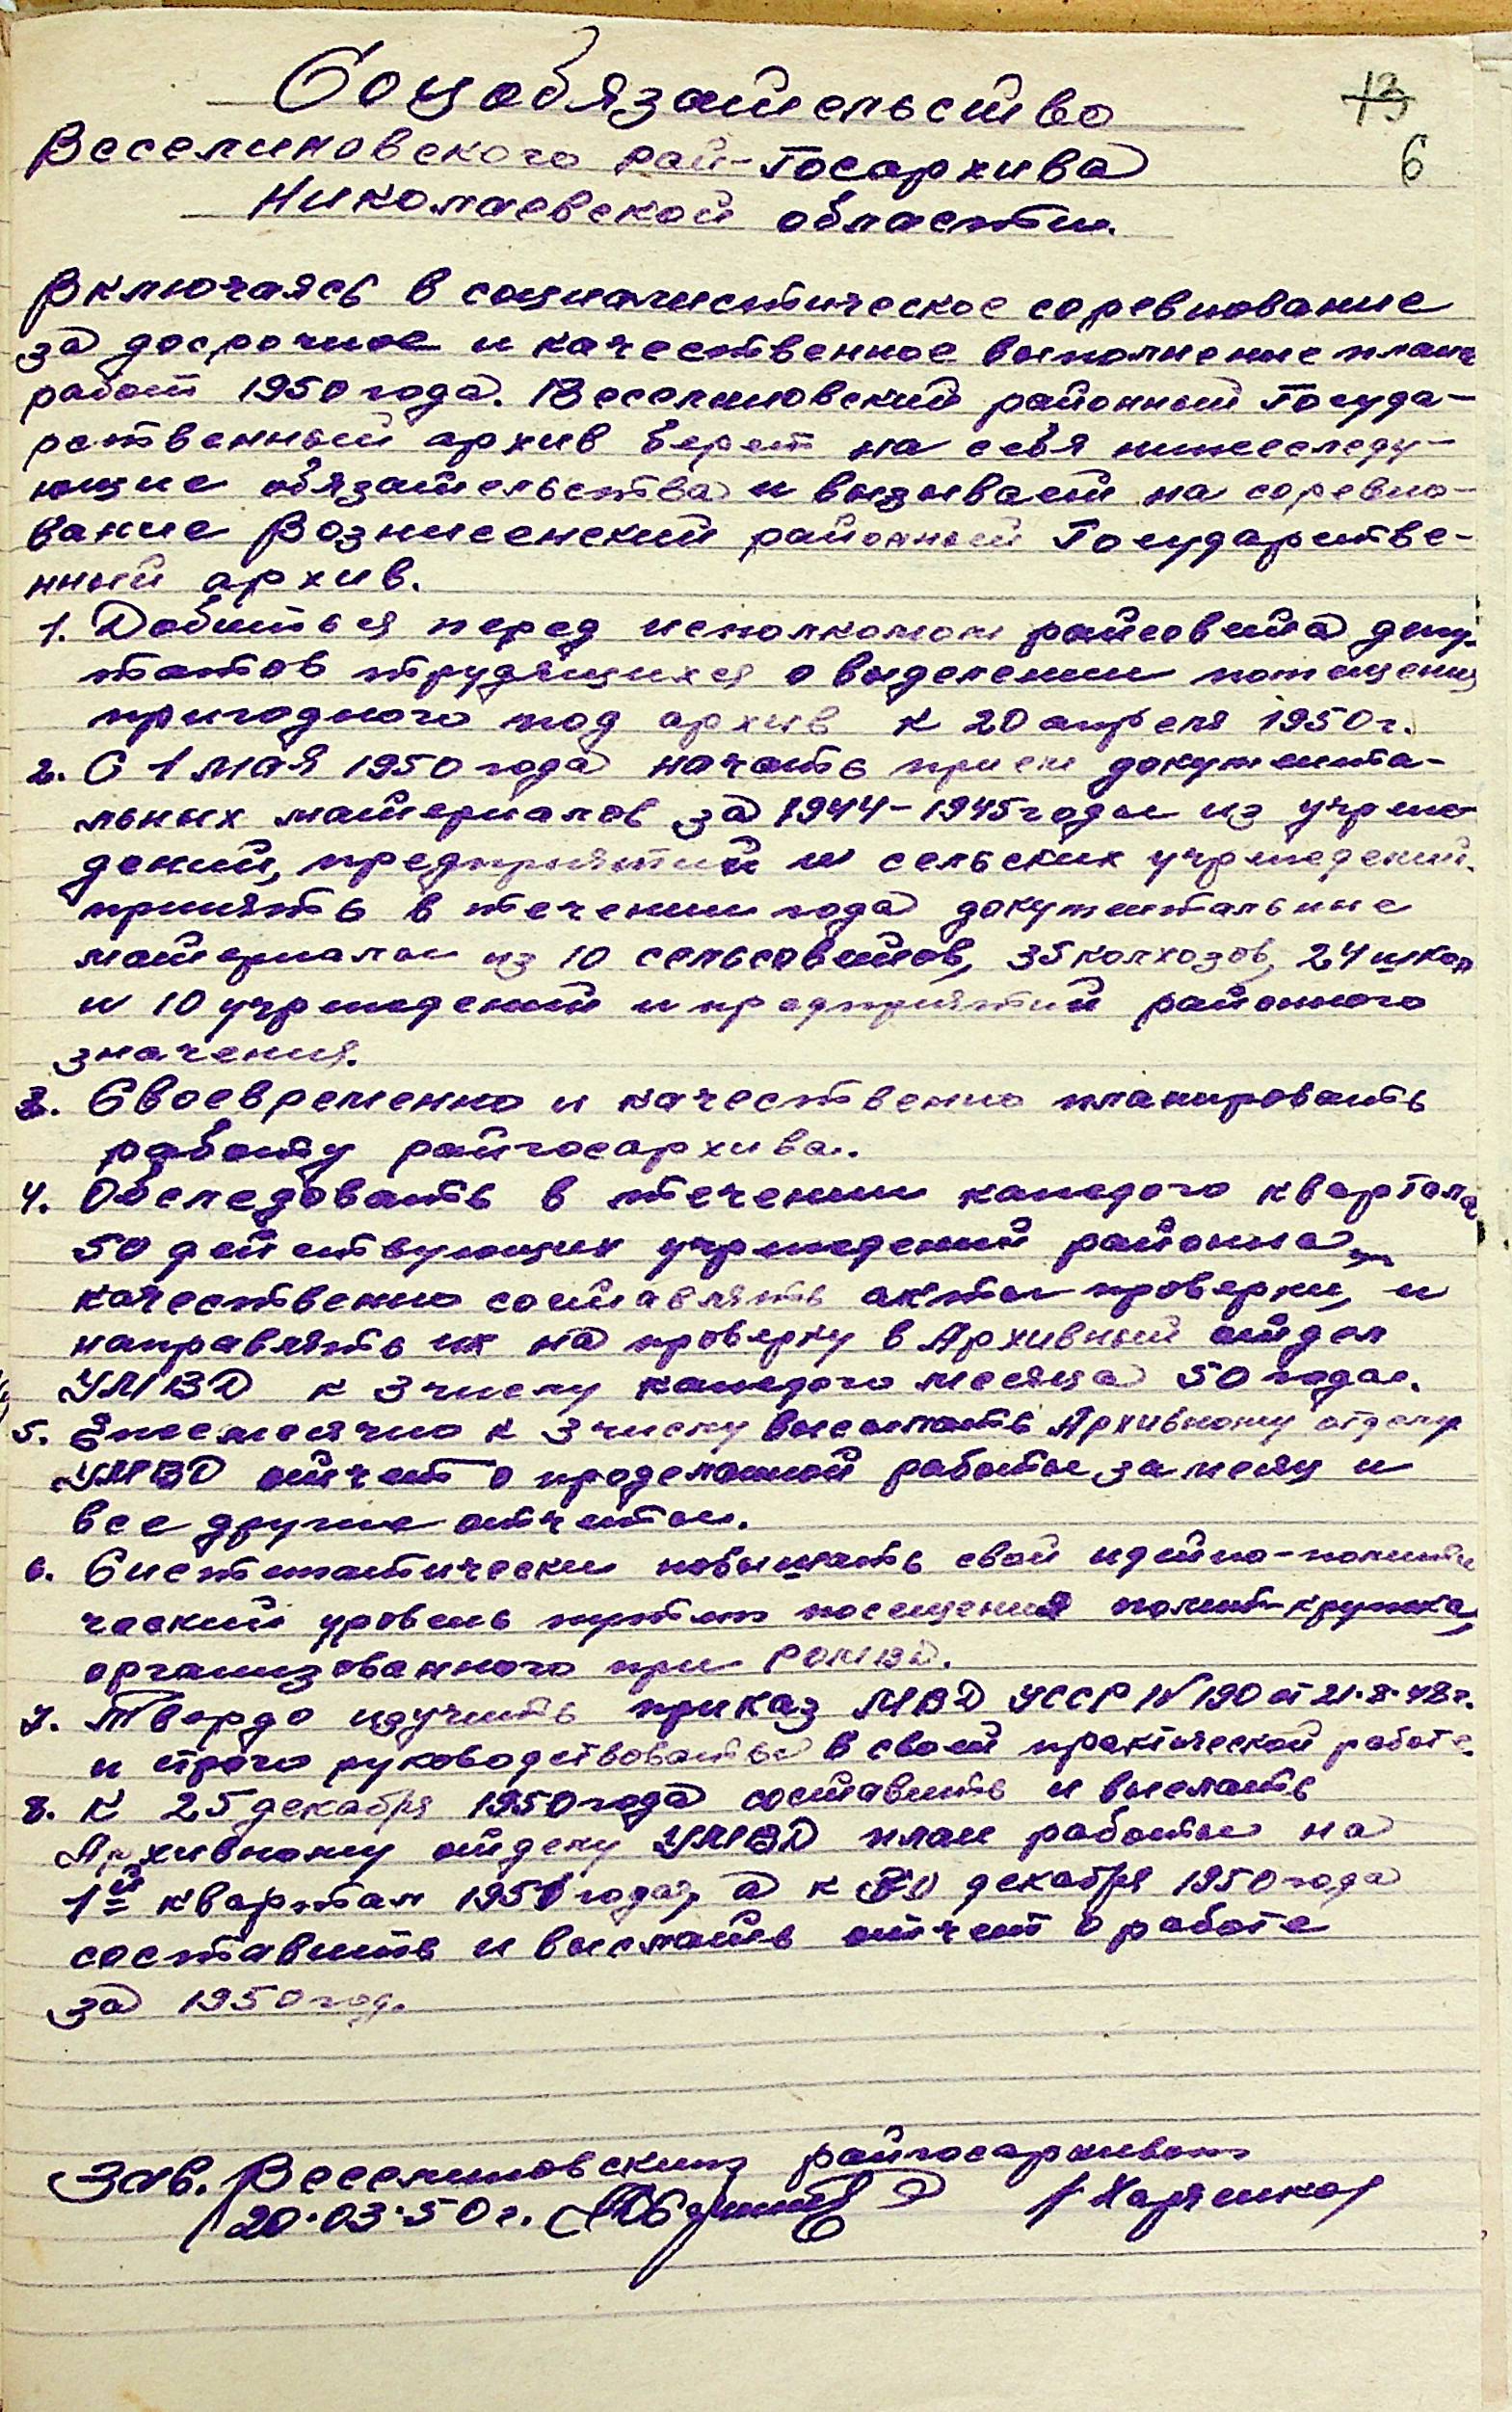 Соцобязательство
13
Веселиновского рай-Госархива
6
Николаевской области.
Включаясь в социалистическое соревнование
за досрочное и качественное выполнение плана
работ 1950 года. Веселиновский районный Госуда-
рственный архив берет на себя нижеследу-
ющие обязательства и вызывает на соревно-
вание Вознесенский районный Государстве-
нный архив.
1. Добиться перед исполкомом райсовета депу-
татов трудящихся о выделении помещения
пригодного под архив к 20 апреля 1950 г.
2. С 1 мая 1950 года начать прием документа-
льных материалов за 1944-1945 годы из учреж-
дений, предприятий и сельских учреждений.
принять в течении года документальные
материалы из 10 сельсоветов, 35 колхозов, 24 школ
и 10 учреждений и предприятий районного
значения.
3. Своевременно и качественно планировать
работу райгосархива.
4. Обследовать в течении каждого квартала
50 действующих учреждений района,
качественно составлять акты проверки, и
направлять их на проверку в Архивный отдел
УМВД к 3 числу каждого месяца 50 года.
5. Ежемесячно к 3 числу высылать Архивному отделу
УМВД отчет о проделанной работе за месяц и
все другие отчеты.
6. Систематически повышать свой идейно-полити
ческий уровень путем посещения политкружка,
организованного при РОМВД.
7. Твердо изучить приказ МВД УССР № 190 от 21.8.48 г.
и строго руководствоваться в своей практической работе.
8. К 25 декабря 1950 года составить и выслать
Архивному отделу УМВД план работы на
1й квартал 1951 года, а к 30 декабря 1950 года
составить и выслать отчет о работе
за 1950 год.
Зав. Веселиновским райгосархивом
20.03.50 г. /Харченко/